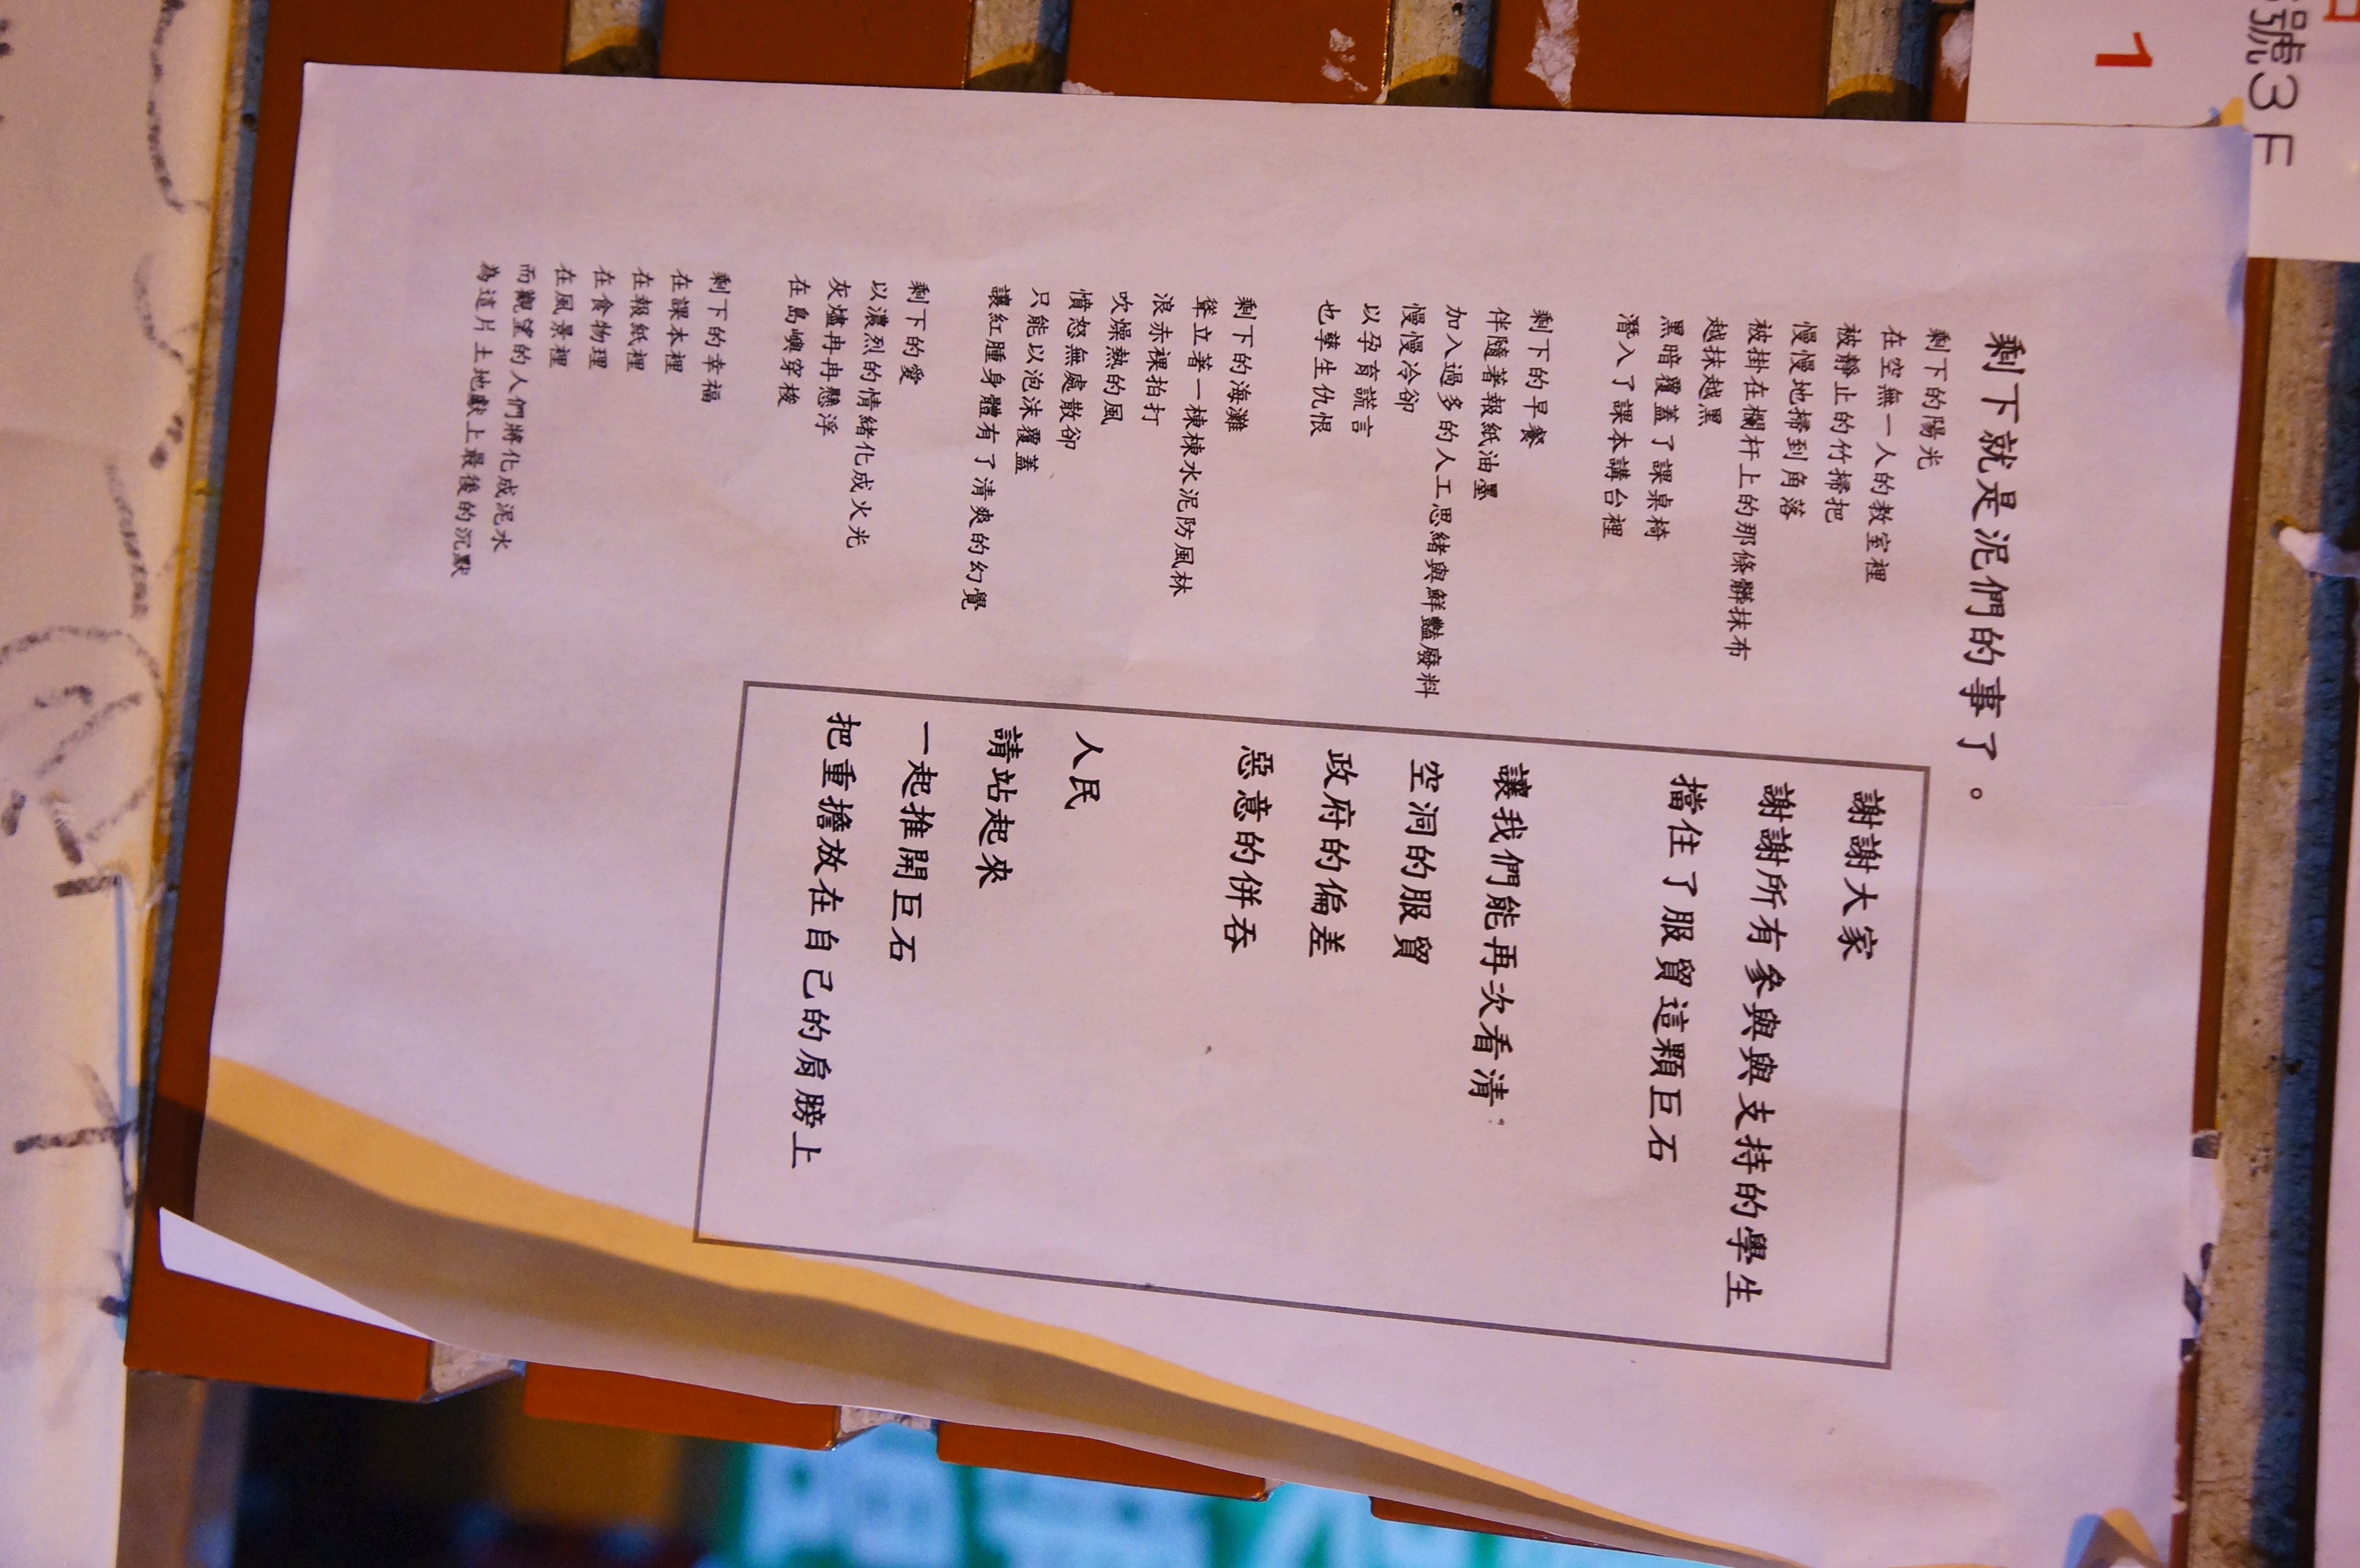 剩下就是泥們的事了。
剩下的陽光
在空無一人的教室裡
被靜止的竹掃把
慢慢地掃到角落
被掛在欄杆上的那條髒抹布
越抹越黑
黑暗覆蓋了課桌椅
潛入了課本講台裡
剩下的早餐
伴隨著報紙油墨
加入過多的人工思緒與鮮豔廢料
慢慢冷卻
以孕育謊言
也孳生仇恨
剩下的海灘
聳立著一棟棟水泥防風林
浪赤裸拍打
吹燥熱的風
憤怒無處散卻
只能以泡沫覆蓋
讓紅腫身體有了清爽的幻覺
剩下的愛
以濃烈的情緒化成火光
灰燼冉冉懸浮
在島嶼穿梭
剩下的幸福
在課本裡
在報紙裡
在食物理
在風景裡
而觀望的人們將化成泥水
為這片土地獻上最後的沉默
謝謝大家
謝謝所有參與與支持的學生
擋住了服貿這顆巨石
讓我們能再次看清：
空洞的服貿
政府的偏差
惡意的併吞
人民
請站起來
一起推開巨石
把重擔放在自己的肩膀上
號3F
1